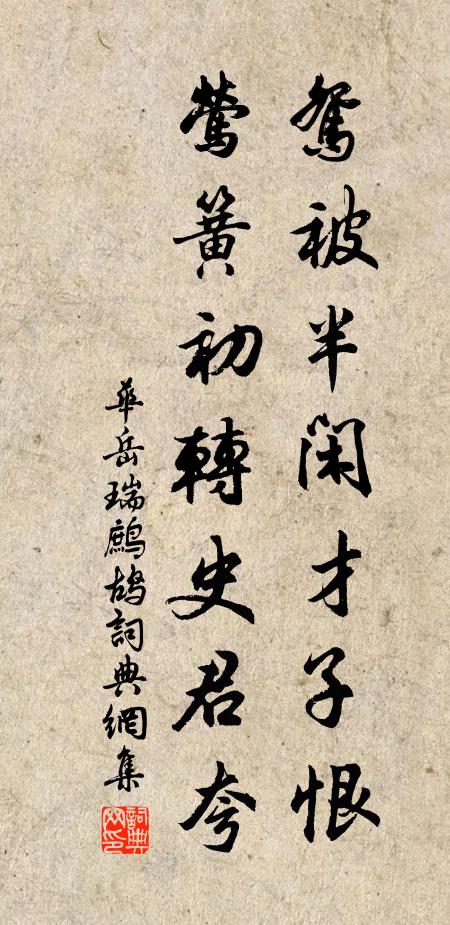 鴛被半閑才子恨
鶯簧初轉史君夸
華岳瑞鷓鴣詞典網集
詞典網印